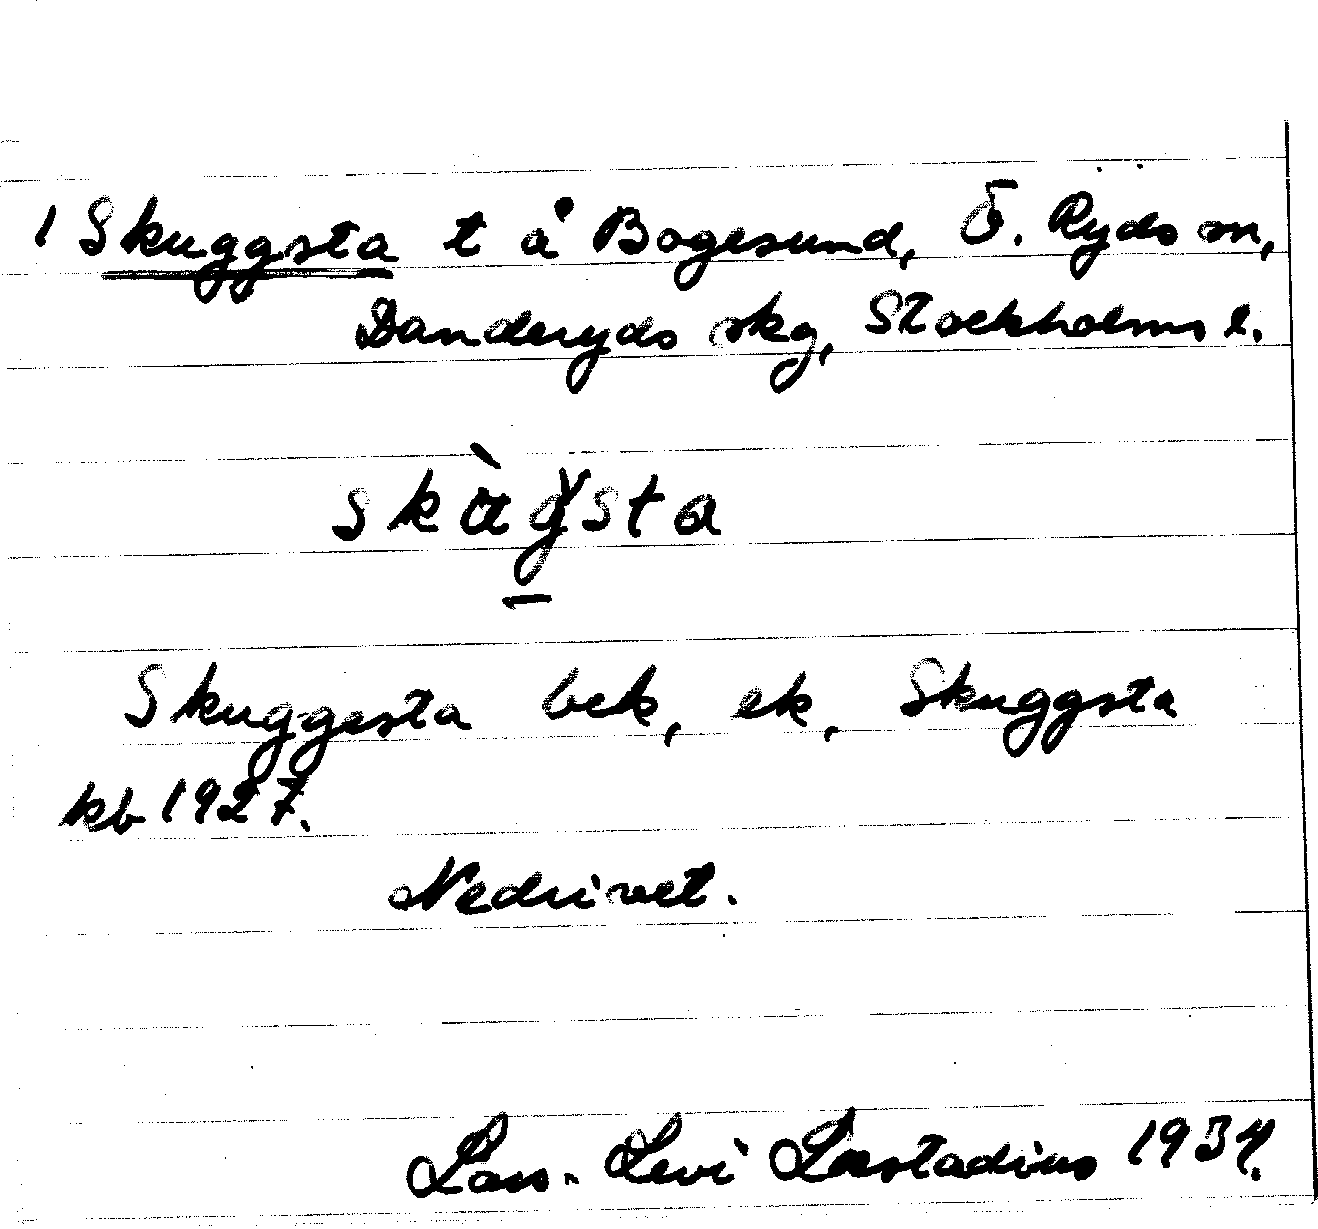 1 Skuggsta t å Bogesund, Ö. Ryds sn,
Danderyds skg, Stockholms l.
skàgsta
Skuggesta bek, ek, Skuggsta
kb 1927.
Nedrivet.
Lars-Levi Læstadius 1934.